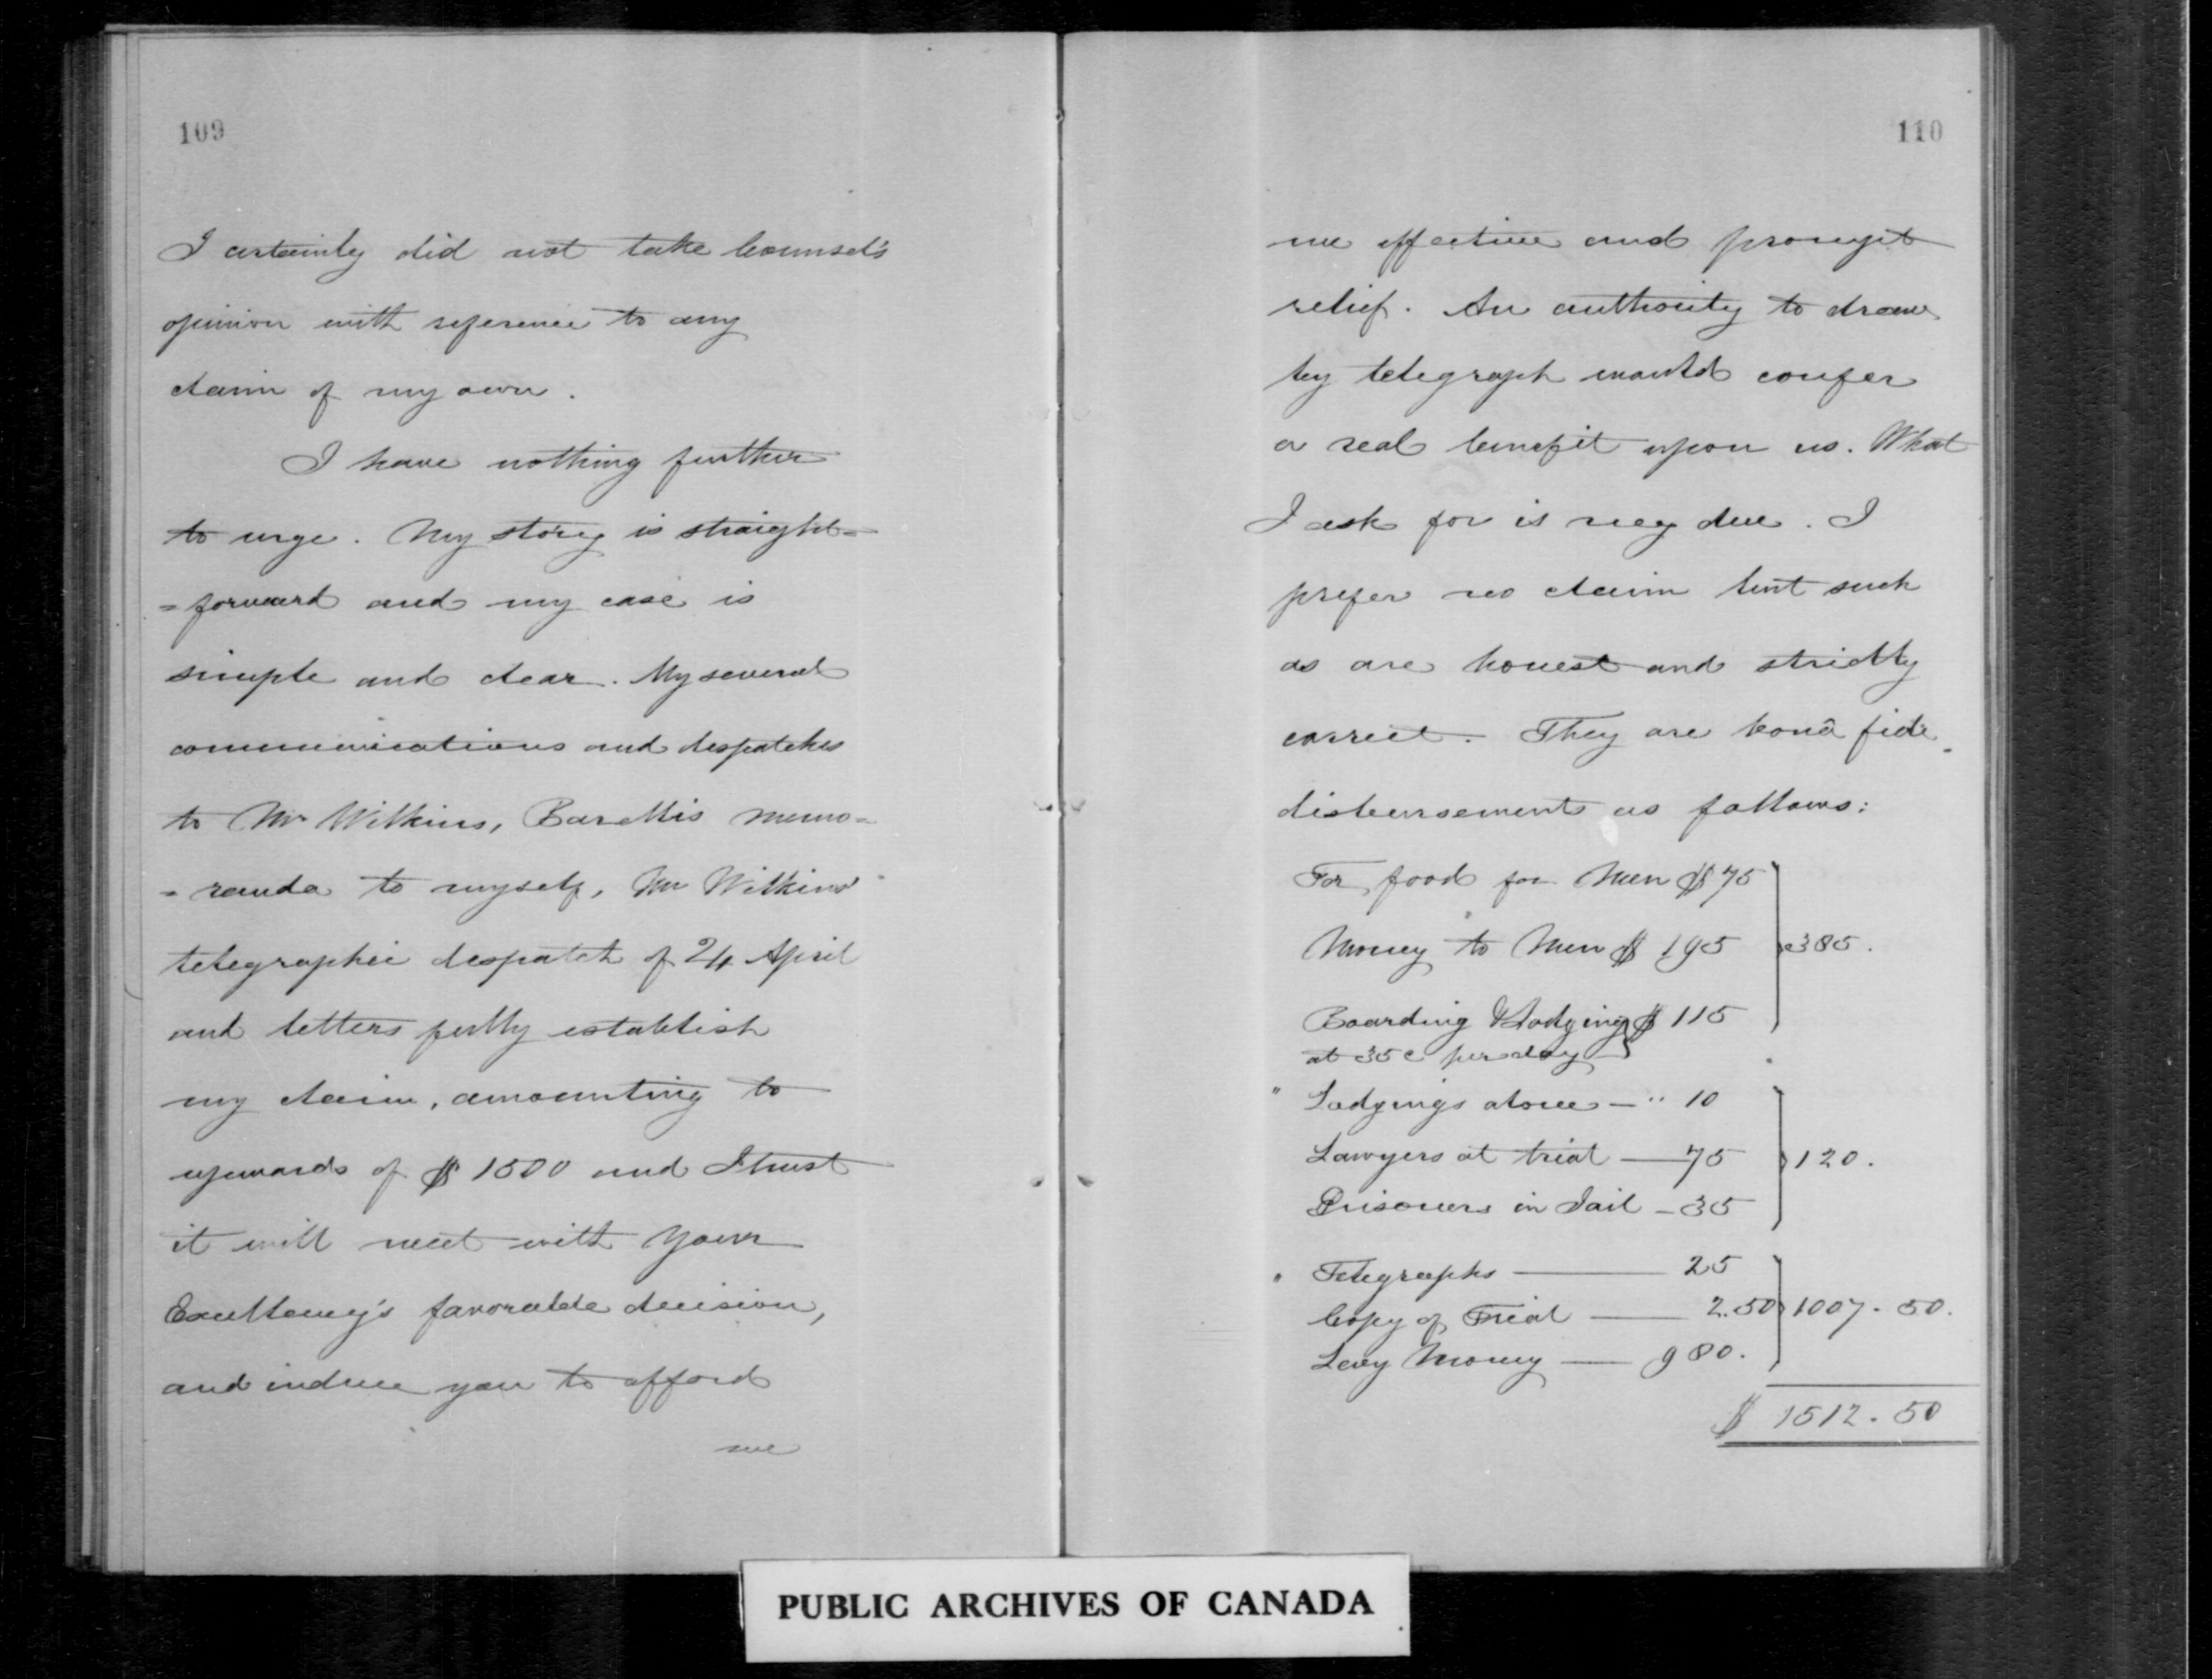 109
I certainly did not take Counsel's
opinion with reference to any
claim of my own.
I have nothing further
to urge. My story is straight=
=forward and my case is
simple and clear. My several
communications and despatches
to Mr Wilkins, Barellis memo=
=randa to myself, Mr Wilkins'
telegraphic despatch of 24 April
and letters fully establish
my claim, amounting to
upwards of $ 1500 and I trust
it will meet with Your
Excellency's favorable decision,
and induce you to afford
me
110
me effective and prompt
relief. An authority to draw
by telegraph would confer
a real benefit upon us. What
I ask for is my due. I
prefer no claim but such
as are honest and strictly
correct. They are bonâ fide
disbursements as follows:
For food for Men $ 75
Money to Men $ 195 } 385.
Boarding & Lodging $ 115
at 35c per day }
" Lodgings alone — " 10
Lawyers at trial — 75 } 120.
Prisoners in Jail — 35
" Telegraphs — 25
Copy of Trial — 2.50 } 1007.50.
Levy Money — 980.
$ 1512.50
PUBLIC ARCHIVES OF CANADA